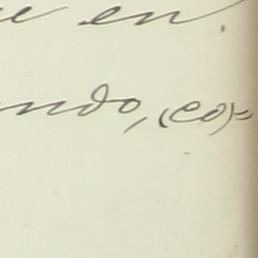 e en
ndo, (co=